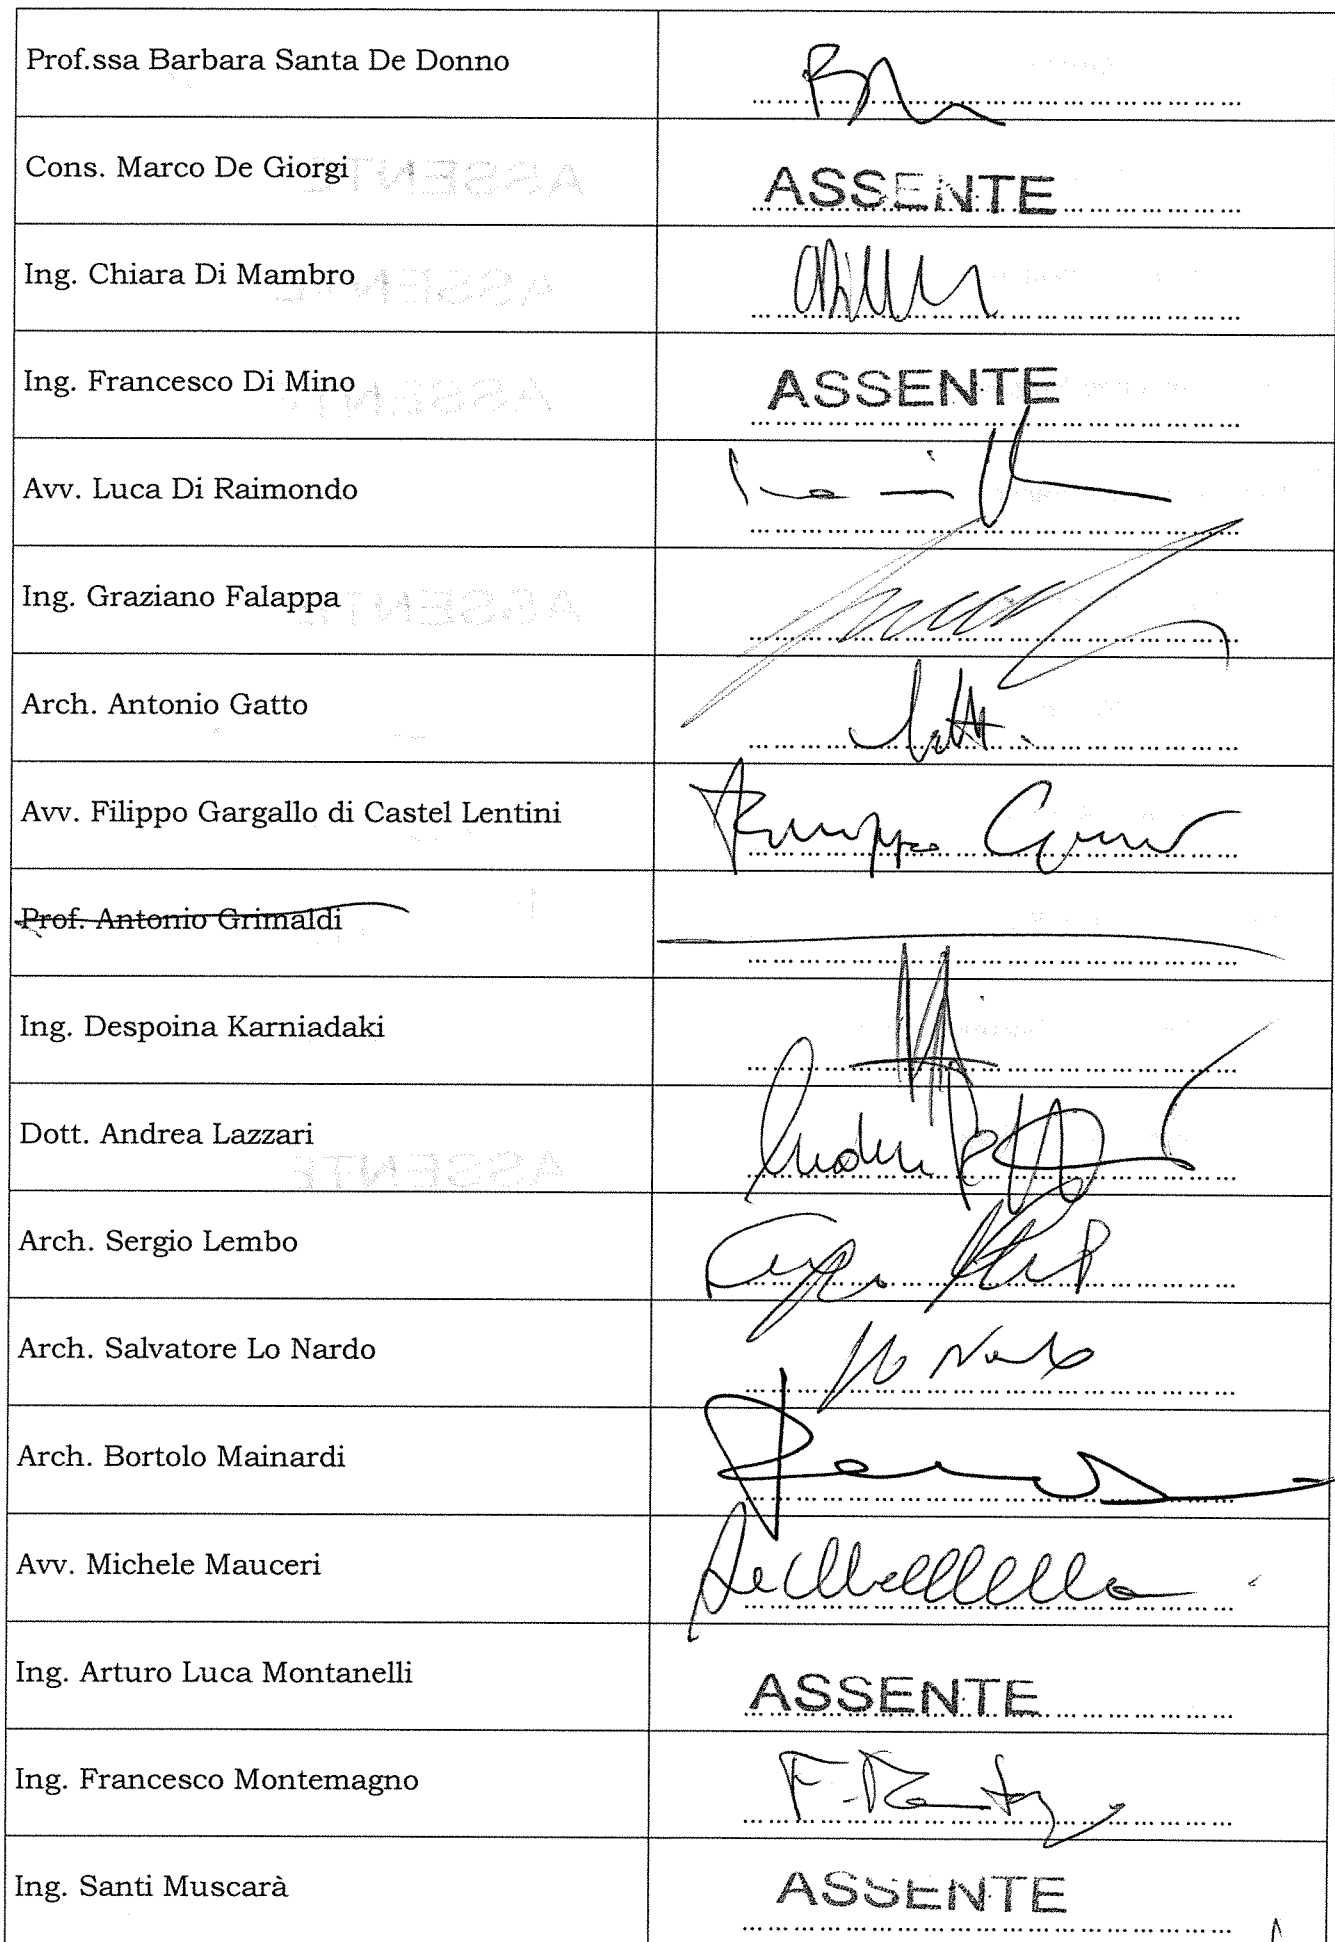 Prof.ssa Barbara Santa De Donno
Cons. Marco De Giorgi ASSENTE
Ing. Chiara Di Mambro
Ing. Francesco Di Mino ASSENTE
Avv. Luca Di Raimondo
Ing. Graziano Falappa
Arch. Antonio Gatto
Avv. Filippo Gargallo di Castel Lentini
Prof. Antonio Grimaldi
Ing. Despoina Karniadaki
Dott. Andrea Lazzari
Arch. Sergio Lembo
Arch. Salvatore Lo Nardo Lo Nardo
Arch. Bortolo Mainardi
Avv. Michele Mauceri
Ing. Arturo Luca Montanelli ASSENTE
Ing. Francesco Montemagno
Ing. Santi Muscarà ASSENTE